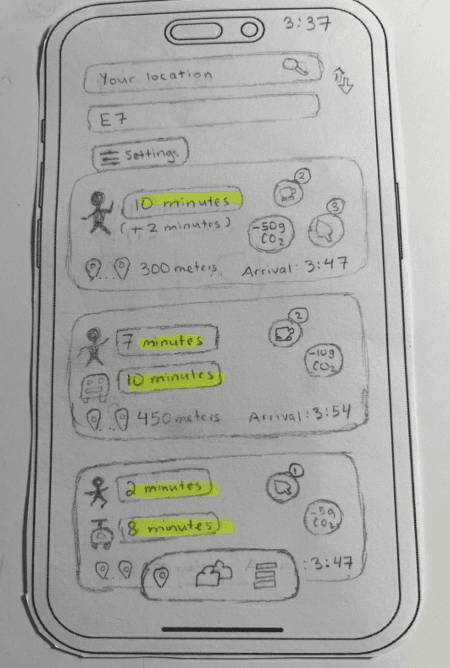 3:37
Your location
E7
Settings
10 minutes
2
(+2 minutes)
3
-50g
CO2
300 meters
Arrival: 3:47
7 minutes
2
10 minutes
-10g
CO2
450 meters
Arrival: 3:54
2 minutes
1
8 minutes
-5g
CO2
: 3:47